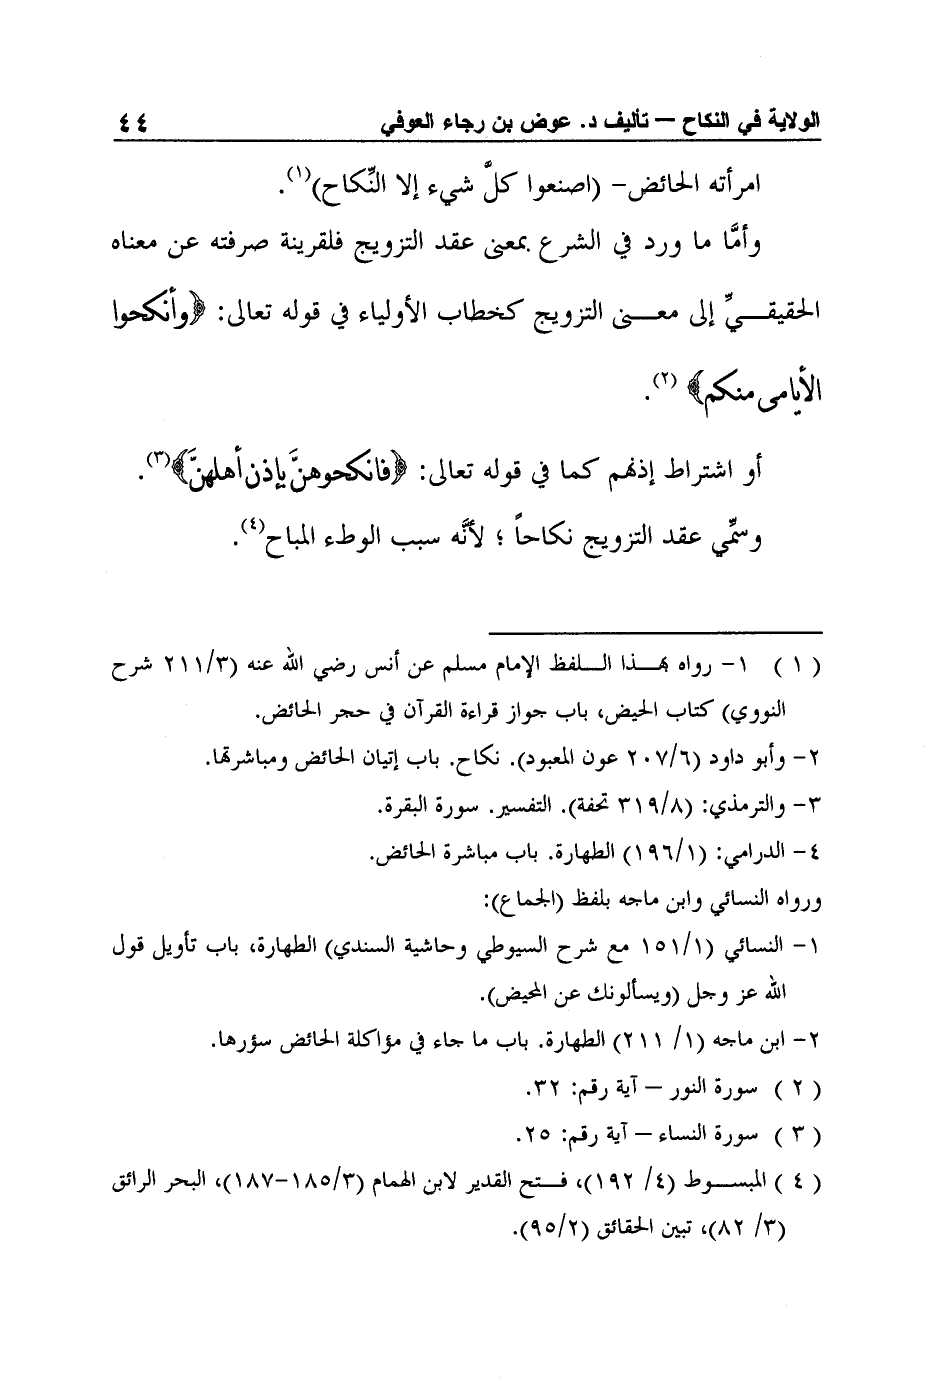 الولاية في النكاح — تأليف د. عوض بن رجاء العوفي ٤٤
امرأته الحائض- (اصنعوا كلَّ شيء إلا النِّكاح)(١).
وأمَّا ما ورد في الشرع بمعنى عقد التزويج فلقرينة صرفته عن معناه
الحقيقيِّ إلى معنى التزويج كخطاب الأولياء في قوله تعالى: ﴿وأنكحوا
الأيامى منكم﴾ (٢).
أو اشتراط إذنهم كما في قوله تعالى: ﴿فانكحوهنَّ بإذن أهلهنَّ﴾(٣).
وسمِّي عقد التزويج نكاحاً ؛ لأنَّه سبب الوطء المباح(٤).
( ١ ) ١- رواه بهذا اللفظ الإمام مسلم عن أنس رضي الله عنه (٢١١/٣ شرح
النووي) كتاب الحيض، باب جواز قراءة القرآن في حجر الحائض.
٢- وأبو داود (٢٠٧/٦ عون المعبود). نكاح. باب إتيان الحائض ومباشرتها.
٣- والترمذي: (٣١٩/٨ تحفة). التفسير. سورة البقرة.
٤- الدرامي: (١٩٦/١) الطهارة. باب مباشرة الحائض.
ورواه النسائي وابن ماجه بلفظ (الجماع):
١- النسائي (١٥١/١ مع شرح السيوطي وحاشية السندي) الطهارة، باب تأويل قول
الله عز وجل (ويسألونك عن المحيض).
٢- ابن ماجه (١/ ٢١١) الطهارة. باب ما جاء في مؤاكلة الحائض سؤرها.
( ٢ ) سورة النور – آية رقم: ٣٢.
( ٣ ) سورة النساء – آية رقم: ٢٥.
( ٤ ) المبسوط (٤/ ١٩٢)، فتح القدير لابن الهمام (١٨٥/٣-١٨٧)، البحر الرائق
(٣/ ٨٢)، تبين الحقائق (٩٥/٢).